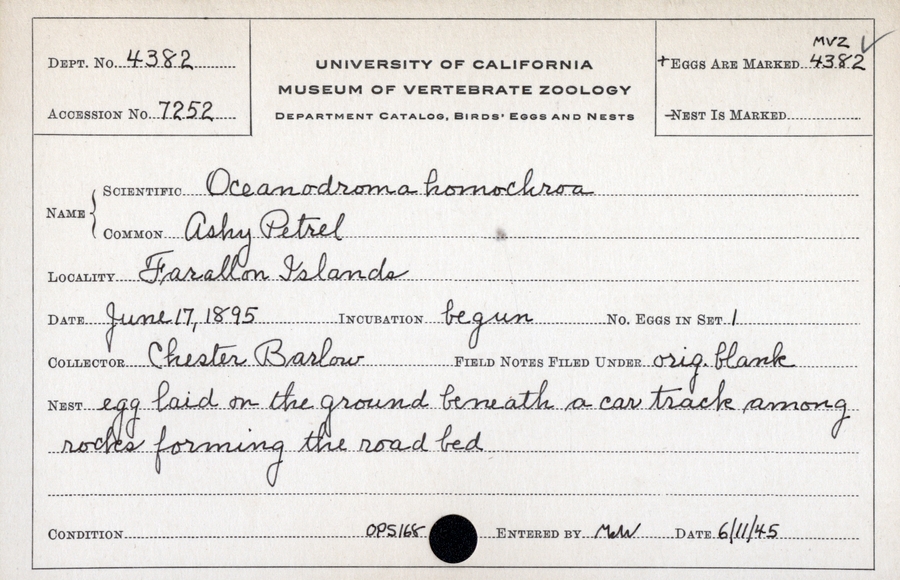 DEPT. NO. 4382
ACCESSION NO. 7252
UNIVERSITY OF CALIFORNIA
MUSEUM OF VERTEBRATE ZOOLOGY
DEPARTMENT CATALOG, BIRDS' EGGS AND NESTS
MVZ ✓
+EGGS ARE MARKED 4382
-NEST IS MARKED
NAME
SCIENTIFIC Oceanodroma homochroa
COMMON Ashy Petrel
LOCALITY Farallon Islands
DATE June 17, 1895 INCUBATION begun NO. EGGS IN SET 1
COLLECTOR Chester Barlow FIELD NOTES FILED UNDER orig. blank
NEST egg laid on the ground beneath a car track among
rocks forming the road bed
CONDITION OPS168 ENTERED BY DATE 6/11/45